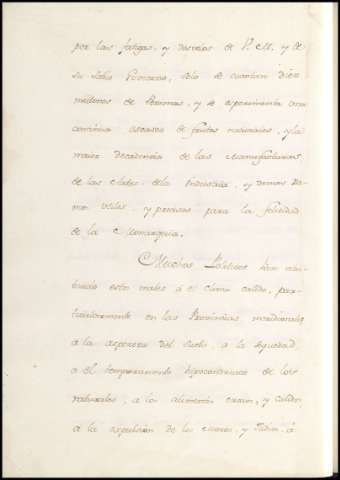 por las fatigas, y desvelos de V. M. y de
su sabio Govierno, solo se cuentan diez
millones de Personas, y se experimenta una
continua escasez de frutos naturales, y la
maior decadencia de las Manufacturas
de las Artes, de la Industria, y demas Ra-
mos utiles, y precisos para la felicidad
de la Monarquia.
Muchos Politicos han atri-
buido estos males á el clima calido, par-
ticularmente en las Provincias meridionales
á la aspereza del suelo, a la sequedad,
a el temperamento hipocondriaco de los
naturales, a los alimentos y calidos
á la expulsion de los Moros, y Judios, á